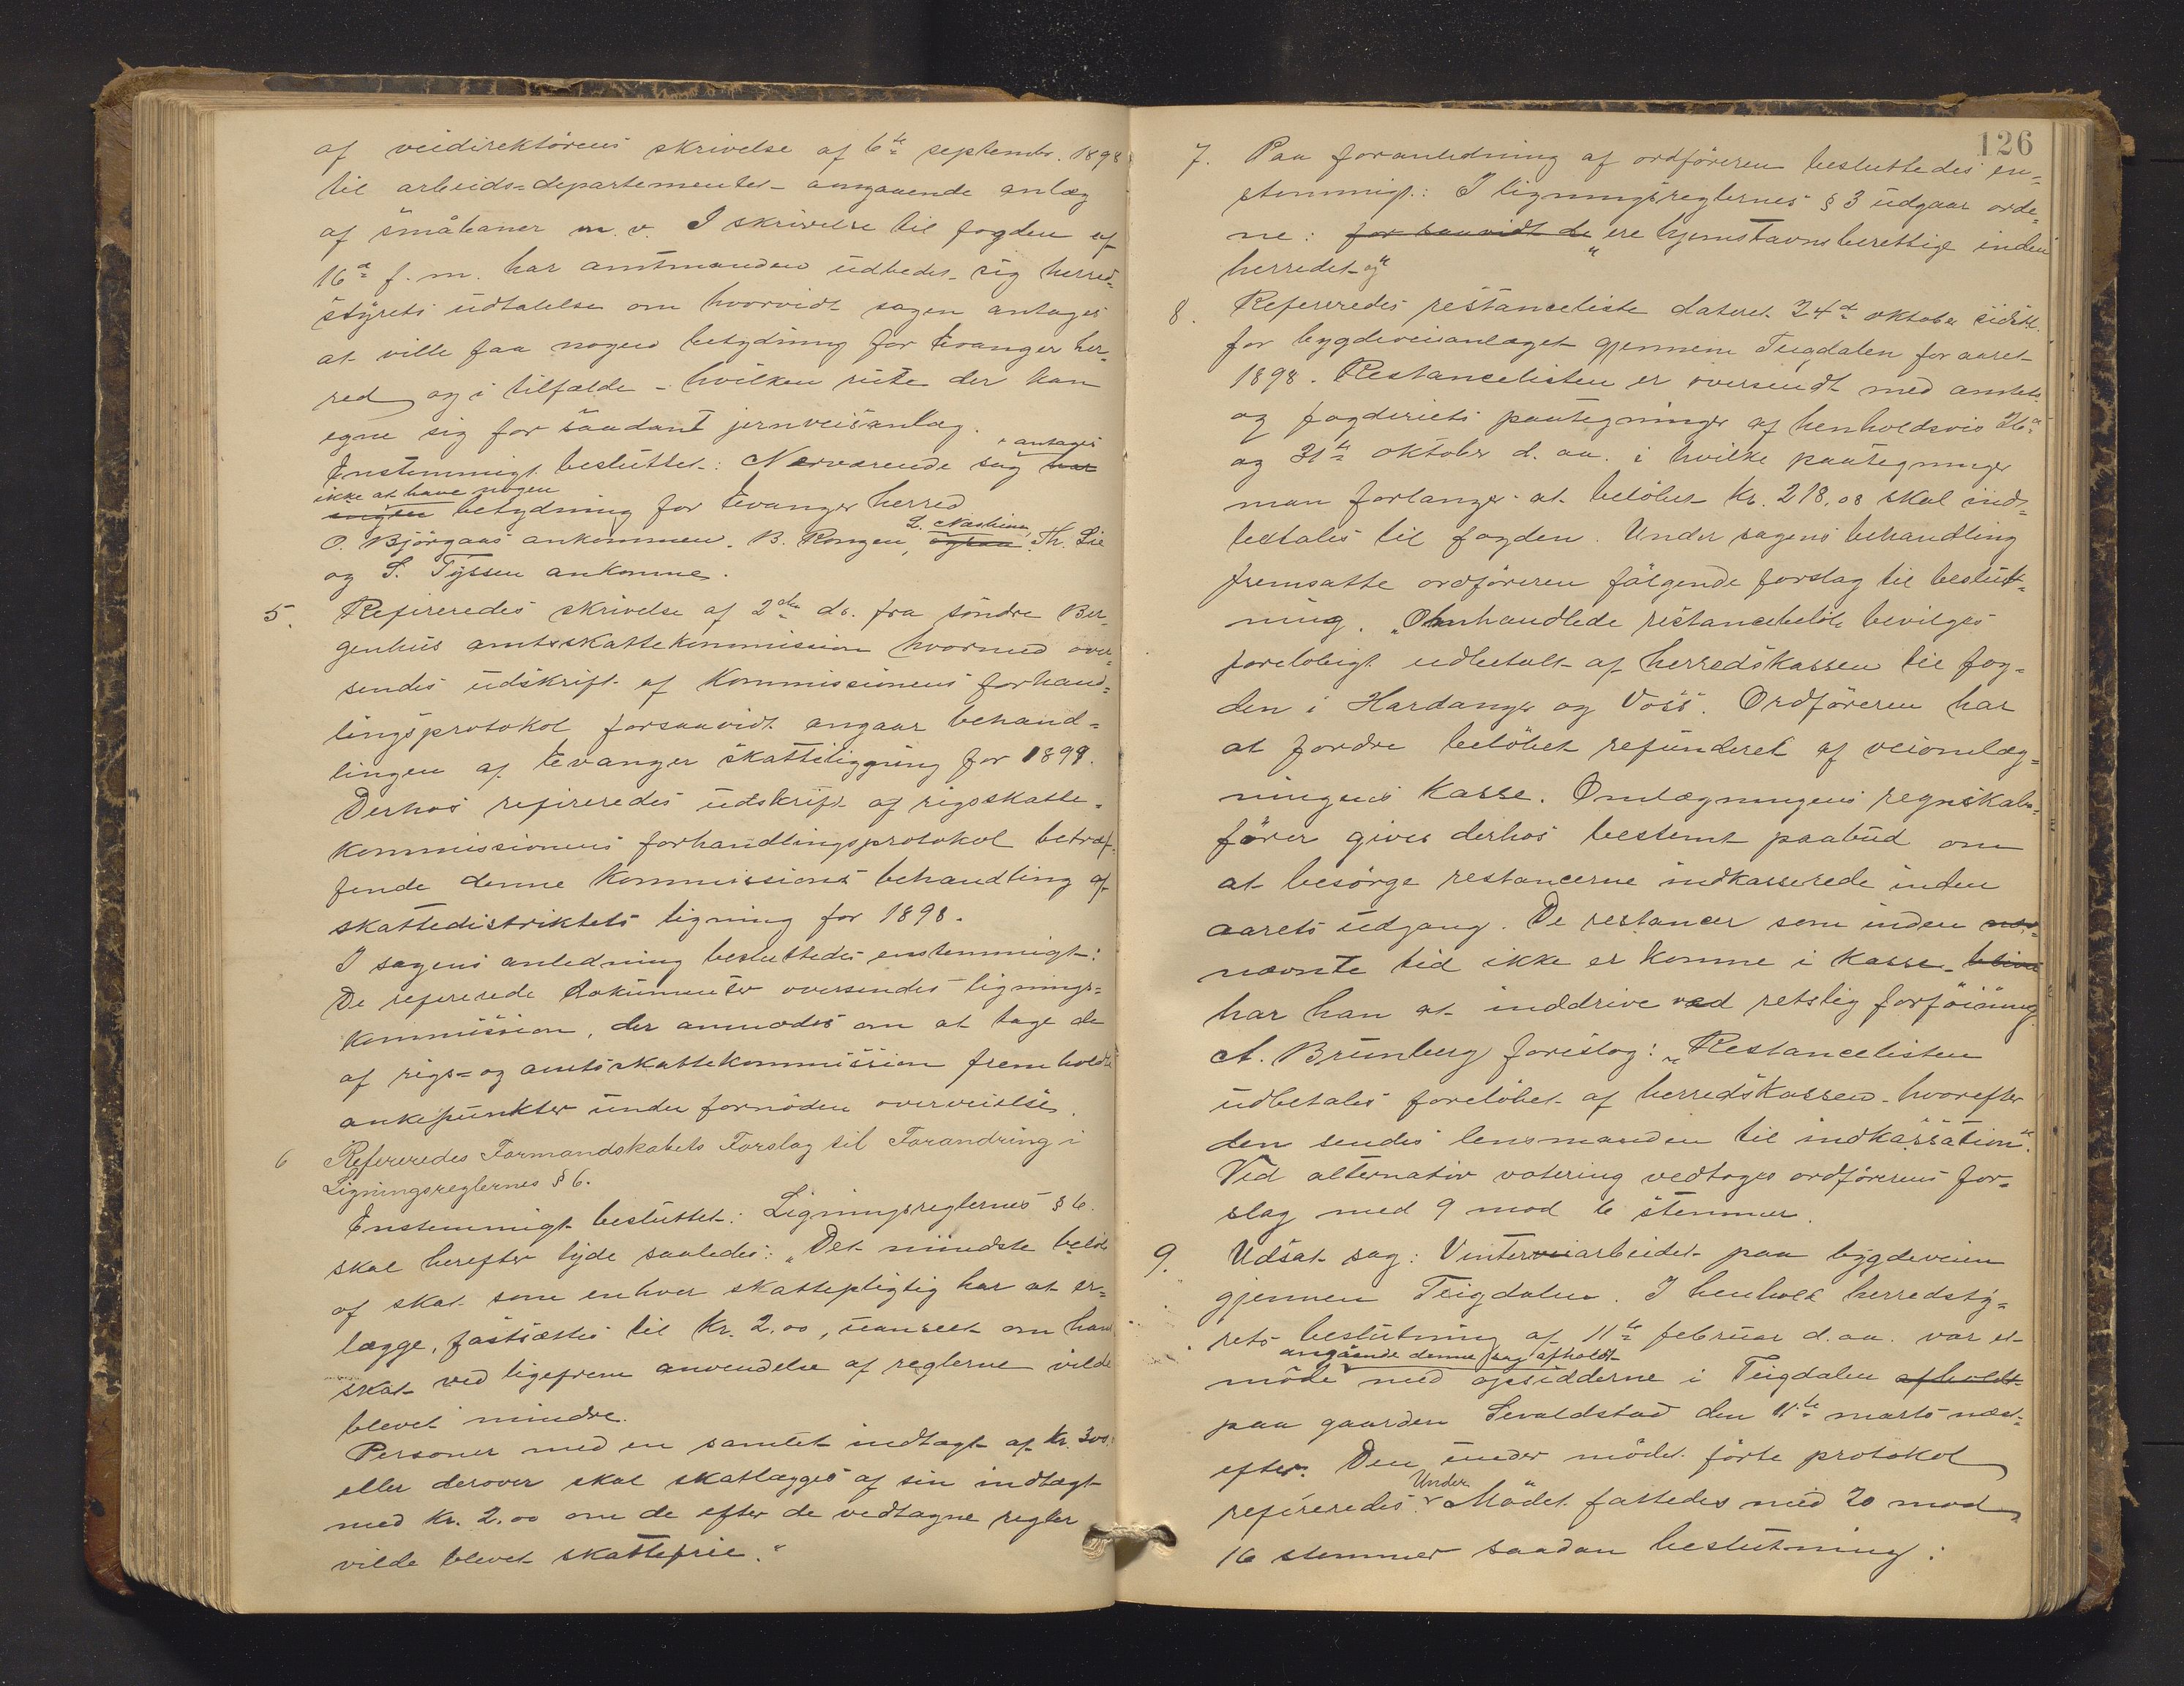 af veidirektörens skrivelse af 6te septembr. 1898
til arbeids-departementet angaaende anlæg
af småbaner m. v. I skrivelse til fogden af
16de f. m. har amtmanden udbedet sig herred-
styrets udtalelse om hvorvidt sagen antages
at ville faa nogen betydning for Evanger her-
red og i tilfælde - hvilken rute der kan
egne sig for saadant jernveisanlæg.
antages
Enstemmigt besluttet: Nærværende sag har
ikke at have nogen
ingen betydning for Evanger herred
L. Næsheim,
O. Björgaas ankommen. B. Rongen, Th. Lie
og S. Tyssen ankomne.
5. Refereredes skrivelse af 2den ds. fra söndre Ber-
genhus amtsskattekommission hvormed over-
sendes udskrift af Kommissionens forhand-
lingsprotokol forsaavidt angaar behand-
lingen af Evanger skatteligning for 1898.
Derhos refereredes udskrift af rigsskatte-
kommissionens forhandlingsprotokol betræf-
fende denne Kommissions behandling af
skattedistriktets ligning for 1898.
I sagens anledning besluttedes enstemmigt:
De refererede dokumenter oversendes lignings-
kommission, der anmodes om at tage de
af rigs- og amtsskattekommission fremholdte
ankepunkter under fornöden overveielse.
6 Refereredes Formandskabets Forslag til Forandring i
Ligningsreglernes § 6.
Enstemmigt besluttet: Ligningsreglernes § 6.
skal herefter lyde saaledes: "Det mindste belöb
af skat som enhver skattepligtig har at er-
lægge, fastsættes til Kr. 2.00, uanseet om hans
skat ved ligefrem anvendelse af reglerne vilde
blevet mindre.
Personer med en samlet indtægt af Kr. 300
eller derover skal skatlægges af sin indtægt
med Kr. 2.00 om de efter de vedtagne regler
vilde blevet skattefrie."
126
7. Paa foranledning af ordföreren besluttedes en-
stemmigt: I ligningsreglernes § 3 udgaar orde-
ne: for saavidt de "ere hjemstavnsberettige inden
herredet og"
8. Refereredes restanceliste dateret 24de oktober sidstl.
for bygdeveisanlæget gjennem Teigdalen for aaret
1898. Restancelisten er oversendt med amtets
og fogderiets paategninger af henholdsvis 26de
og 31te oktober d. aa. i hvilke paategninger
man forlanger at belöbet Kr. 218,08 skal ind-
betales til fogden. Under sagens behandling
fremsatte ordföreren fölgende forslag til beslut-
ning. "Omhandlede restancebelöb bevilges
forelöbigt udbetalt af herredskassen til fog-
den i Hardanger og Voss. Ordföreren har
at fordre belöbet refunderet af veiomlæg-
ningens Kasse. Omlægningens regnskabs-
förer gives derhos bestemt paabud om
at besörge restancerne indkasserede inden
aarets udgang. De restancer som inden
nævnte tid ikke er komne i Kasse blive
har han at inddrive ved retslig forföining.
A. Brunberg foreslog: "Restancelisten
udbetales forelöbet af herredskassen hvorefter
den sendes lensmanden til indkassation".
Ved alternativ votering vedtoges ordförerens for-
slag med 9 mod 6 stemmer.
9. Udsat sag: Vinterveiarbeidet paa bygdeveien
gjennem Teigdalen. I henhold herredsty-
rets beslutning af 11te februar d. aa. var et
angående denne sag afholdt
möde med opsidderne i Teigdalen afholdt
paa gaarden Sevaldstad den 11te marts næst-
efter. Den under mödet förte protokol
Under
refereredes. Mödet fattedes med 20 mod
16 stemmer saadan beslutning: